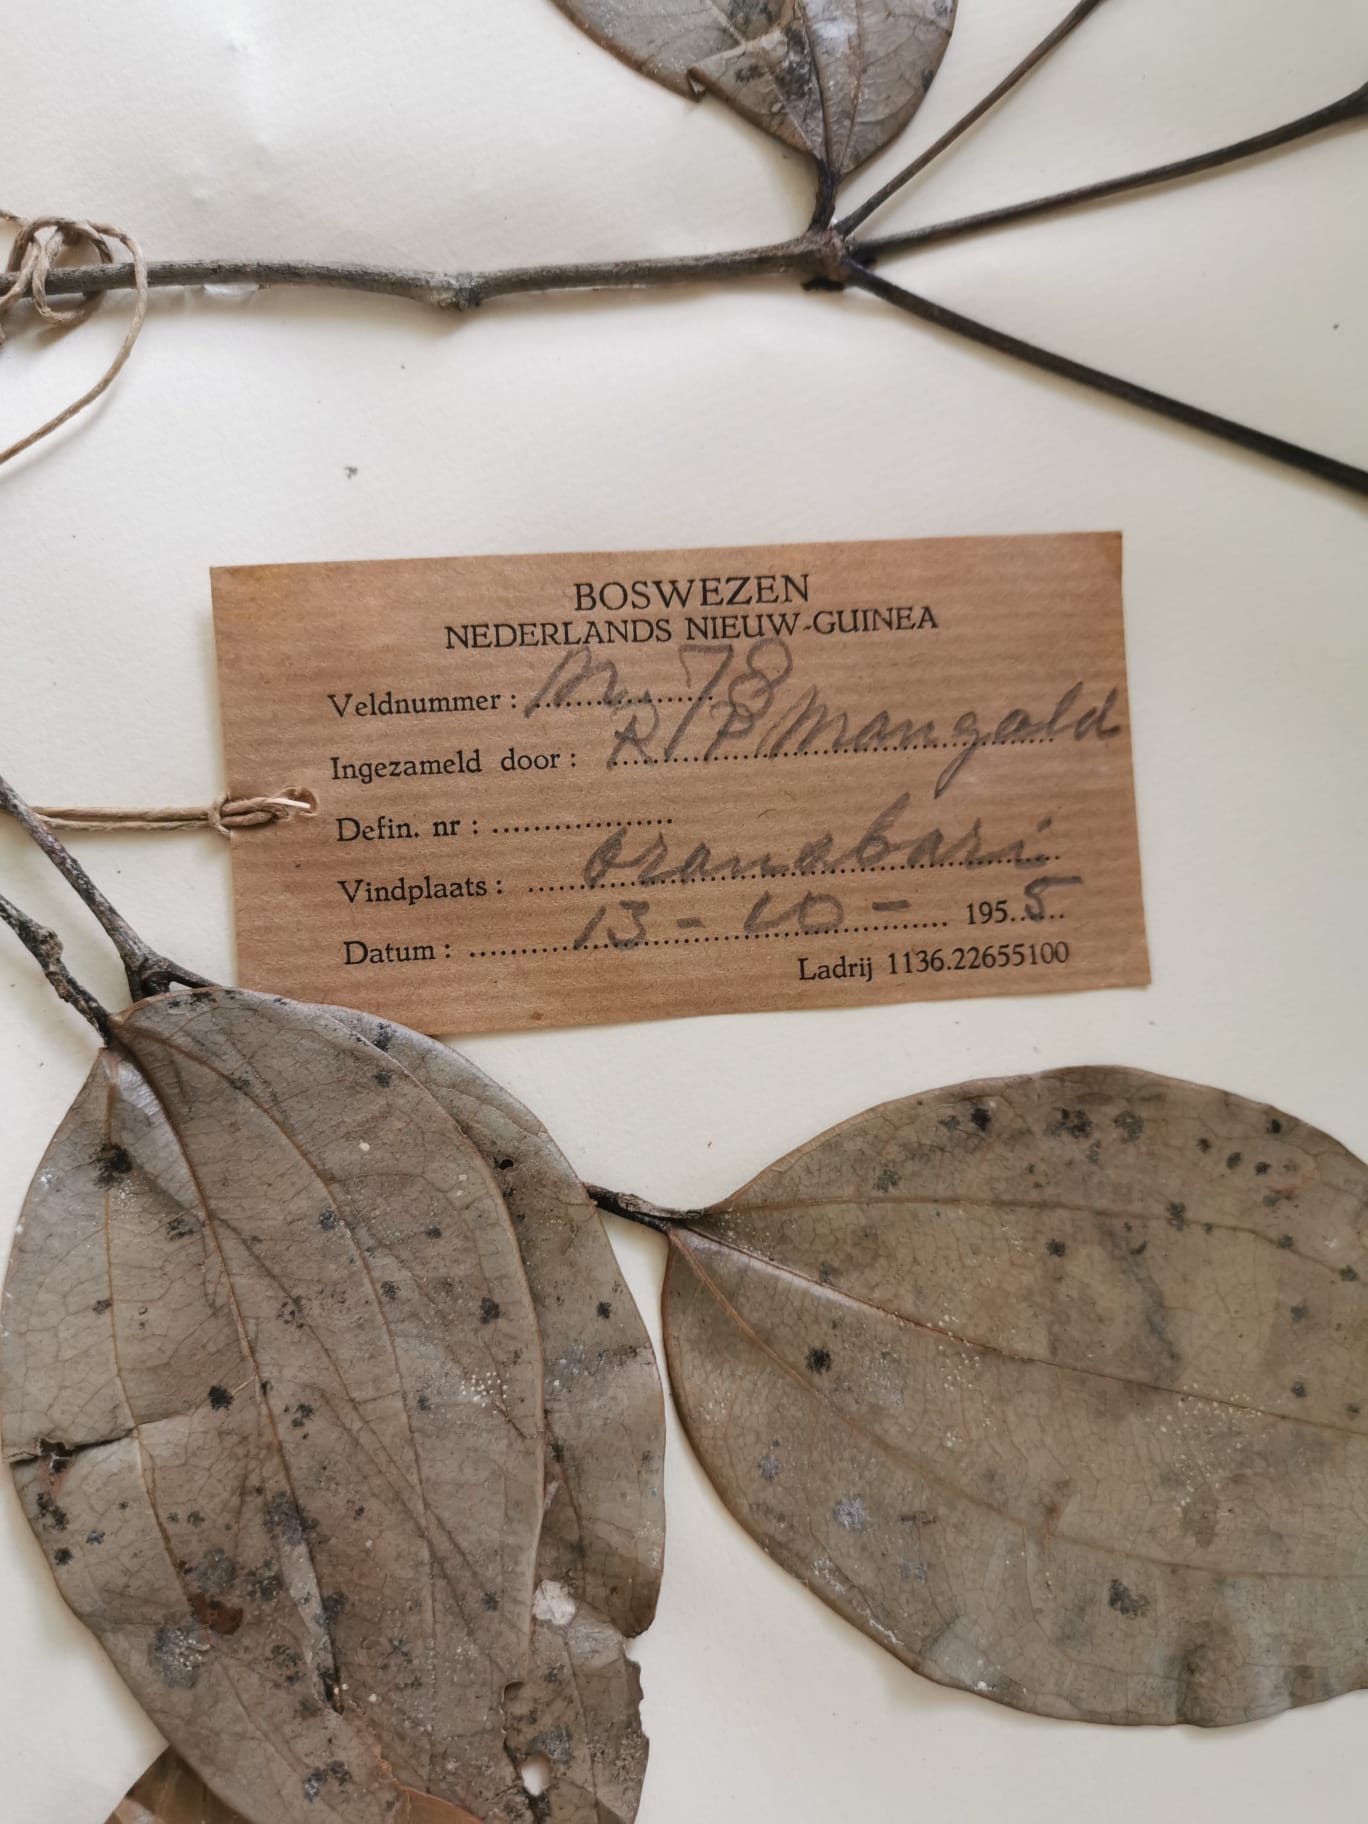 BOSWEZEN
NEDERLANDS NIEUW-GUINEA
Veldnummer: M. 78
Ingezameld door: R P Mangold
Defin. nr:
Vindplaats: Oransbari
Datum: 13-10- 1955
Ladrij 1136.22655100